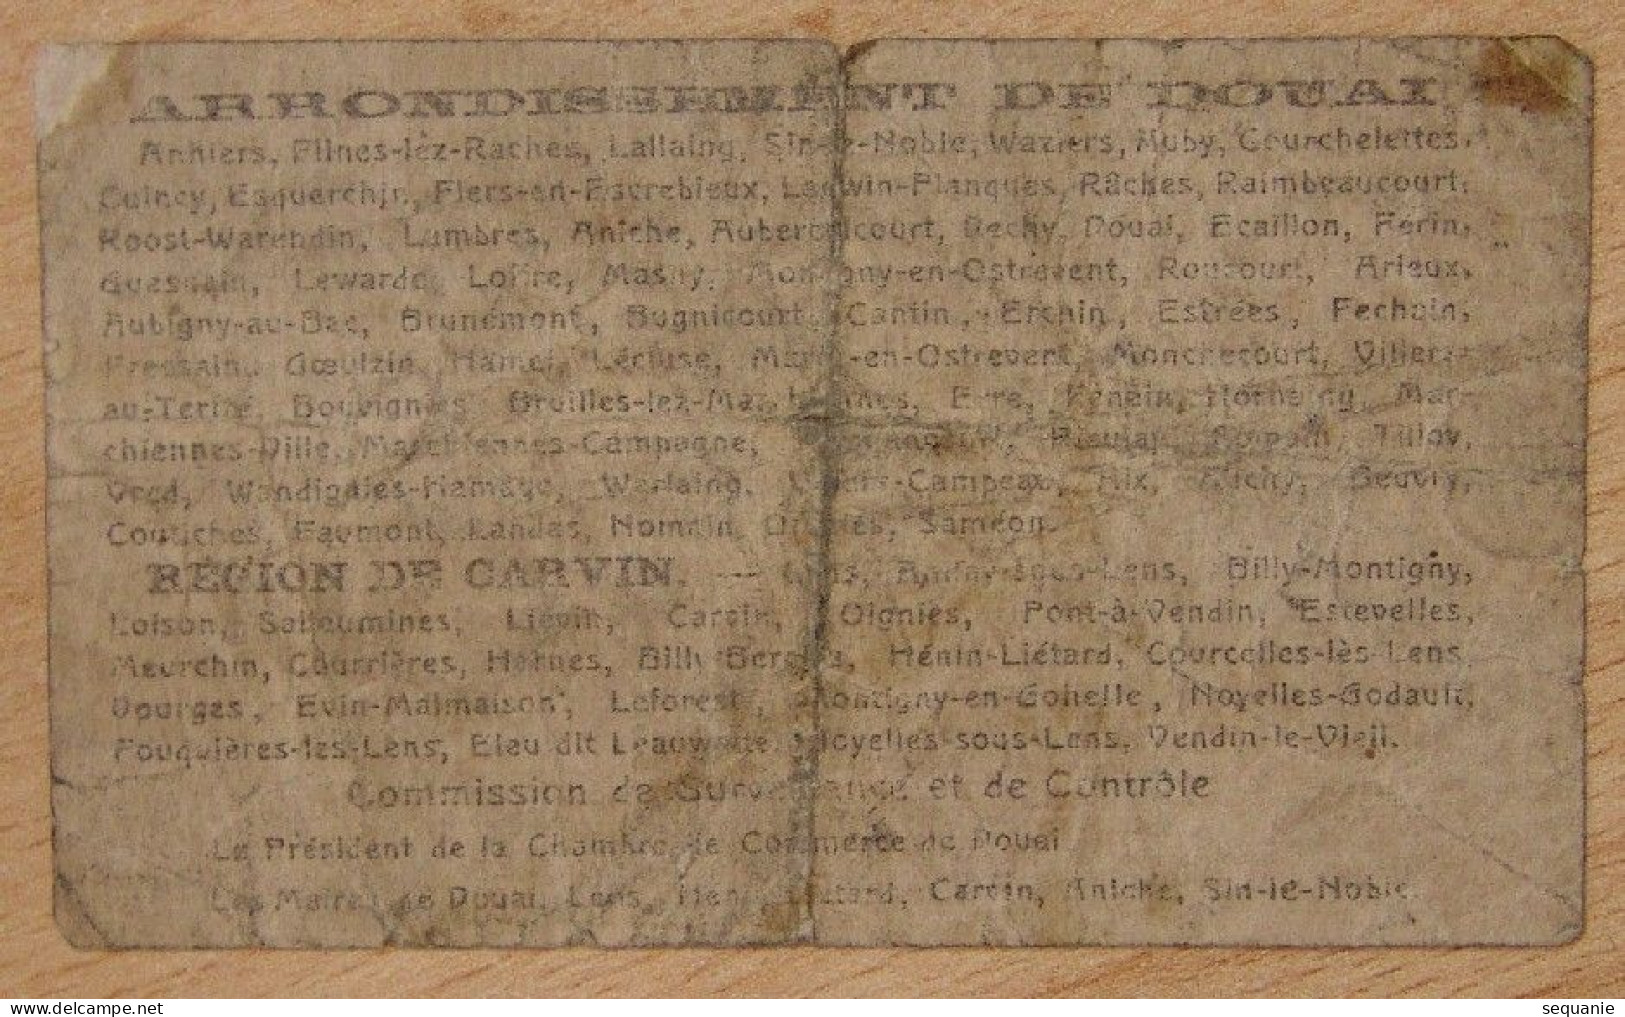 ARRONDISSEMENT DE DOUAI
Anhiers, Flines-lez-Raches, Lallaing, Sin-le-Noble, Waziers, Auby, Courchelettes,
Cuincy, Esquerchin, Flers-en-Escrebieux, Lauwin-Planques, Râches, Raimbeaucourt,
Roost-Warendin, Lambres, Aniche, Auberchicourt, Dechy, Douai, Ecaillon, Férin,
Guesnain, Lewarde, Loffre, Masny, Montigny-en-Ostrevent, Roucourt, Arleux,
Aubigny-au-Bac, Brunémont, Bugnicourt, Cantin, Erchin, Estrées, Fechain,
Fressain, Gœulzin, Hamel, Lécluse, Marcq-en-Ostrevent, Monchecourt, Villers-
au-Tertre, Bouvignies, Bruilles-lez-Marchiennes, Erre, Fenain, Hornaing, Mar-
chiennes-Ville, Marchiennes-Campagne, Rieulay, Somain, Tilloy,
Vred, Wandignies-Hamage, Warlaing, Villers-Campeau, Aix, Auchy, Beuvry,
Coutiches, Faumont, Landas, Nomain, Orchies, Saméon.
RÉGION DE CARVIN. — Lens, Annay-sous-Lens, Billy-Montigny,
Loison, Sallaumines, Liévin, Carvin, Oignies, Pont-à-Vendin, Estevelles,
Meurchin, Courrières, Harnes, Billy-Berclau, Hénin-Liétard, Courcelles-lès-Lens,
Dourges, Evin-Malmaison, Leforest, Montigny-en-Gohelle, Noyelles-Godault,
Fouquières-les-Lens, Eleu dit Leauwette, Noyelles-sous-Lens, Vendin-le-Vieil.
Commission de Surveillance et de Contrôle
Le Président de la Chambre de Commerce de Douai
Les Maires de Douai, Lens, Hénin-Liétard, Carvin, Aniche, Sin-le-Noble.
delcampe.net
sequanie